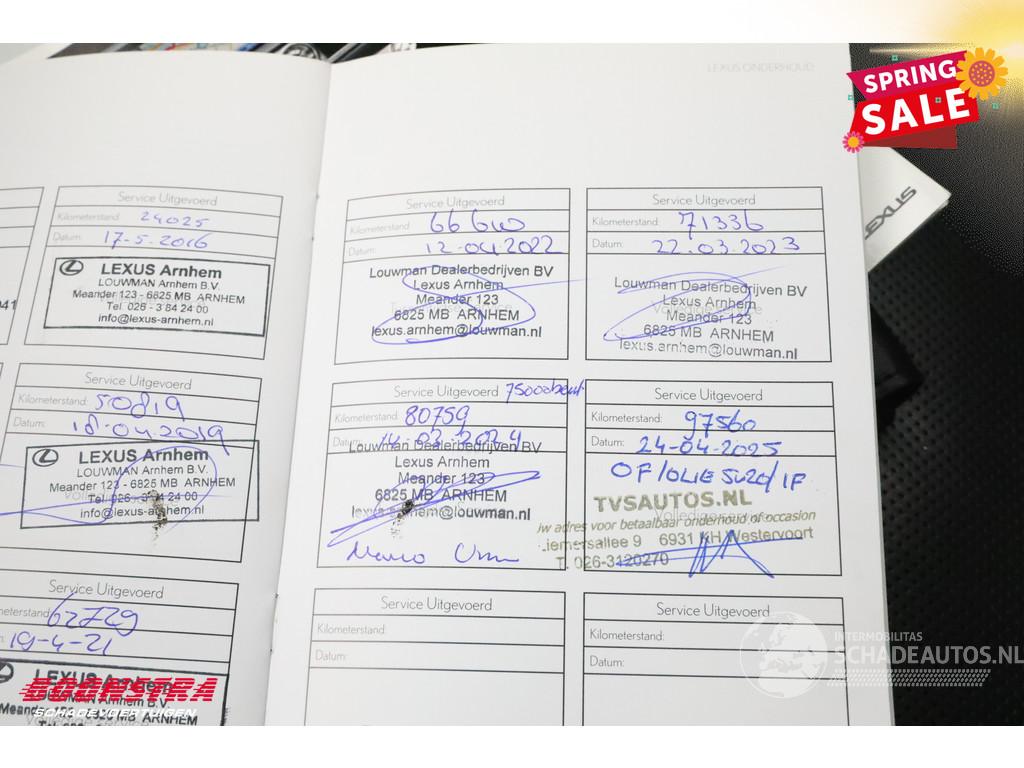 SPRING
SALE
LEXUS ONDERHOUD
LEXUS
Service Uitgevoerd
Kilometerstand: 24025
Datum: 17-5.2016
LEXUS Arnhem
LOUWMAN Arnhem B.V.
Meander 123 - 6825 MB ARNHEM
Tel. 026 - 3 84 24 00
info@lexus-arnhem.nl
Service Uitgevoerd
Kilometerstand: 50819
Datum: 18-04.2019
LEXUS Arnhem
LOUWMAN Arnhem B.V.
Meander 123 - 6825 MB ARNHEM
Tel. 026 - 3 84 24 00
info@lexus-arnhem.nl
Service Uitgevoerd
meterstand: 62729
19-4-21
LEXUS Arnhem
LOUWMAN Arnhem B.V.
Meander 123 - 6825 MB ARNHEM
Service Uitgevoerd
Kilometerstand: 66610
Datum: 12-04.2022
Louwman Dealerbedrijven BV
Lexus Arnhem
Meander 123
6825 MB ARNHEM
lexus.arnhem@louwman.nl
Service Uitgevoerd
Kilometerstand: 71336
Datum: 22.03.2023
Louwman Dealerbedrijven BV
Lexus Arnhem
Meander 123
6825 MB ARNHEM
lexus.arnhem@louwman.nl
Service Uitgevoerd
Kilometerstand: 80759
Datum: 14-03-2024
Louwman Dealerbedrijven BV
Lexus Arnhem
Meander 123
6825 MB ARNHEM
lexus.arnhem@louwman.nl
Service Uitgevoerd
Kilometerstand: 97560
Datum: 24-04-2025
OF/OLIE 5W20/IF
TVSAUTOS.NL
Volledige service
Uw adres voor betaalbaar onderhoud of occasion
Liemersallee 9 6931 KH Westervoort
T. 026-3120270
Service Uitgevoerd
Kilometerstand:
Datum:
Service Uitgevoerd
Kilometerstand:
Datum:
BOONSTRA
SCHADEVOERTUIGEN
INTERMOBILITAS
SCHADEAUTOS.NL